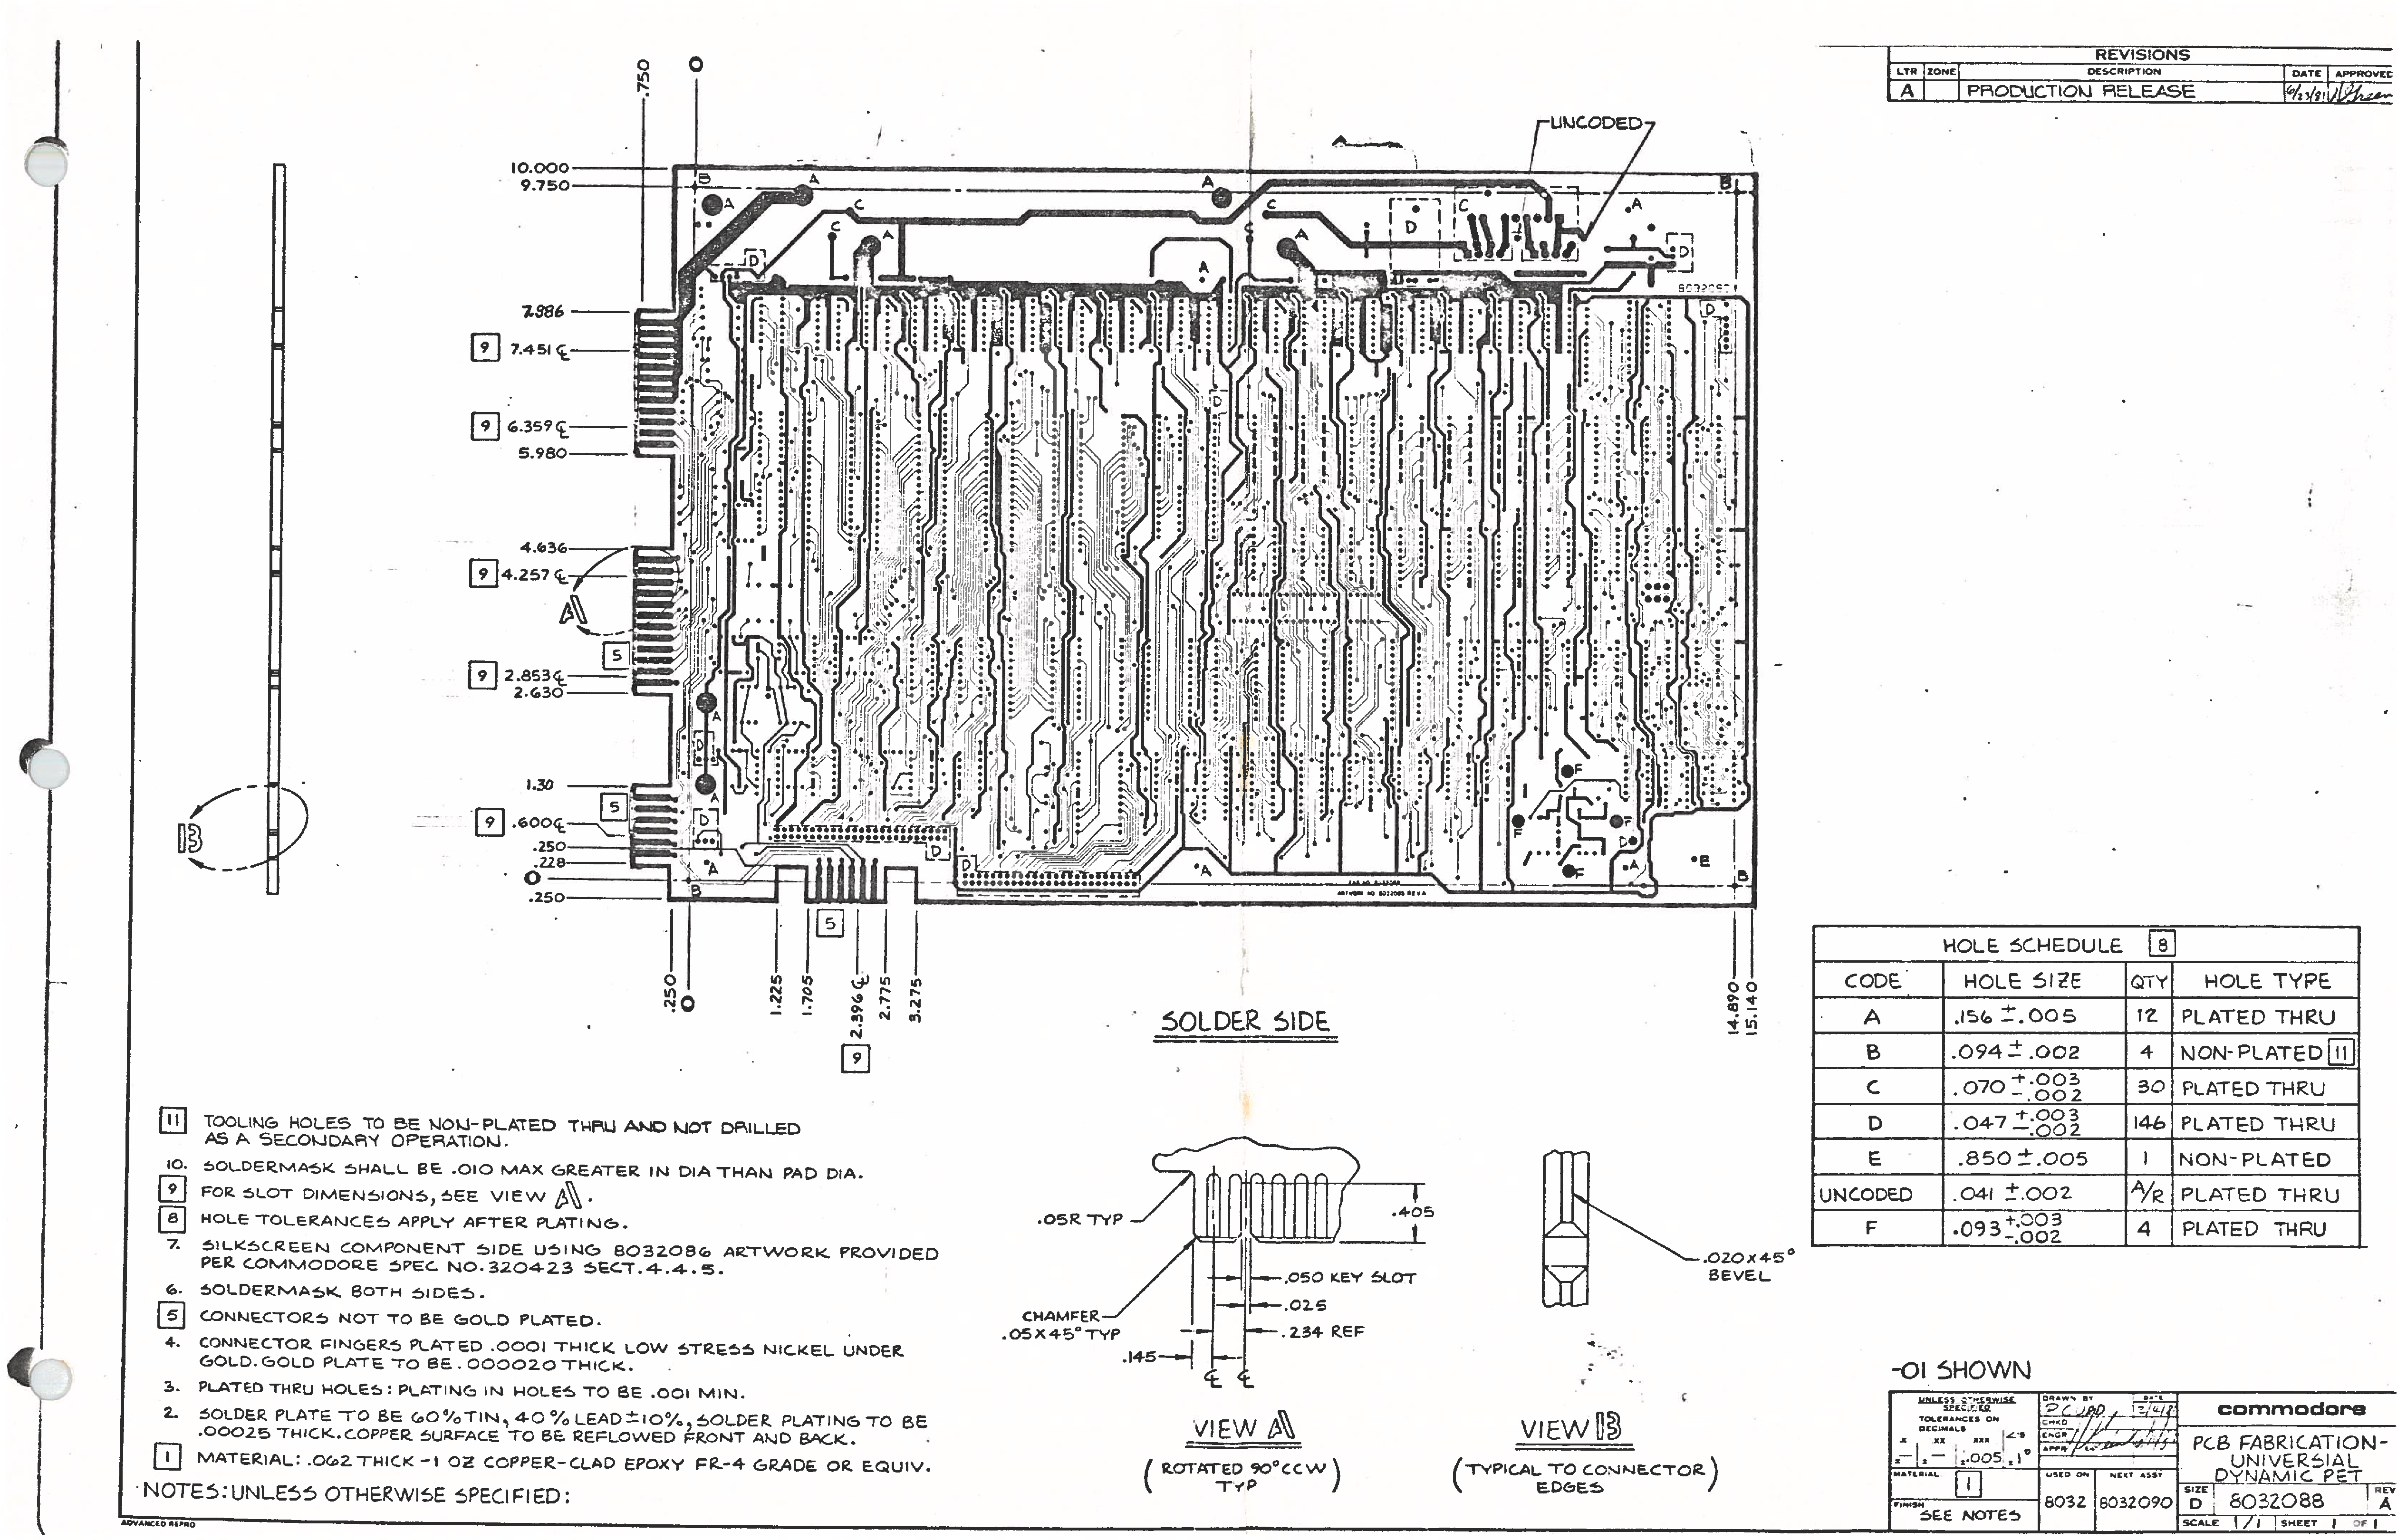 REVISIONS
LTR ZONE DESCRIPTION DATE APPROVED
A PRODUCTION RELEASE 6/23/81
UNCODED
.750
0
10.000
9.750
7.986
9 7.451 ℄
9 6.359 ℄
5.980
4.636
9 4.257 ℄
A
5
9 2.853 ℄
2.630
1.30
5
9 .600 ℄
.250
.228
0
.250
B
B A A C A C C A C D B
A C A A D D
D
8032090
D
D
A
D
A
D
A
B
D
D
A
F
F
F
F
D
A
E
B
ARTWORK NO. 8032086 REV A
5
.250
0
1.225
1.705
2.396 ℄
9
2.775
3.275
14.890
15.140
SOLDER SIDE
HOLE SCHEDULE 8
CODE HOLE SIZE QTY HOLE TYPE
A .156 ±.005 12 PLATED THRU
B .094 ±.002 4 NON-PLATED 11
C .070 +.003 -.002 30 PLATED THRU
D .047 +.003 -.002 146 PLATED THRU
E .850 ±.005 1 NON-PLATED
UNCODED .041 ±.002 A/R PLATED THRU
F .093 +.003 -.002 4 PLATED THRU
11 TOOLING HOLES TO BE NON-PLATED THRU AND NOT DRILLED
AS A SECONDARY OPERATION.
10. SOLDERMASK SHALL BE .010 MAX GREATER IN DIA THAN PAD DIA.
9 FOR SLOT DIMENSIONS, SEE VIEW A.
8 HOLE TOLERANCES APPLY AFTER PLATING.
7. SILKSCREEN COMPONENT SIDE USING 8032086 ARTWORK PROVIDED
PER COMMODORE SPEC NO. 320423 SECT. 4.4.5.
6. SOLDERMASK BOTH SIDES.
5 CONNECTORS NOT TO BE GOLD PLATED.
4. CONNECTOR FINGERS PLATED .0001 THICK LOW STRESS NICKEL UNDER
GOLD. GOLD PLATE TO BE .000020 THICK.
3. PLATED THRU HOLES: PLATING IN HOLES TO BE .001 MIN.
2. SOLDER PLATE TO BE 60% TIN, 40% LEAD ±10%, SOLDER PLATING TO BE
.00025 THICK. COPPER SURFACE TO BE REFLOWED FRONT AND BACK.
1 MATERIAL: .062 THICK -1 OZ COPPER-CLAD EPOXY FR-4 GRADE OR EQUIV.
NOTES: UNLESS OTHERWISE SPECIFIED:
ADVANCED REPRO
.05R TYP
.405
.050 KEY SLOT
.025
CHAMFER
.05X45° TYP
.234 REF
.145
℄ ℄
VIEW A
(ROTATED 90° CCW)
TYP
.020X45°
BEVEL
VIEW B
(TYPICAL TO CONNECTOR)
EDGES
-01 SHOWN
UNLESS OTHERWISE
SPECIFIED
TOLERANCES ON
DECIMALS ∠'S
.X .XX .XXX
±- ±- ±.005 ±1°
MATERIAL
1
FINISH
SEE NOTES
DRAWN BY DATE
CHKD
ENGR
APPR
USED ON NEXT ASSY
8032 8032090
commodore
PCB FABRICATION-
UNIVERSIAL
DYNAMIC PET
SIZE D 8032088 REV A
SCALE 1/1 SHEET 1 OF 1